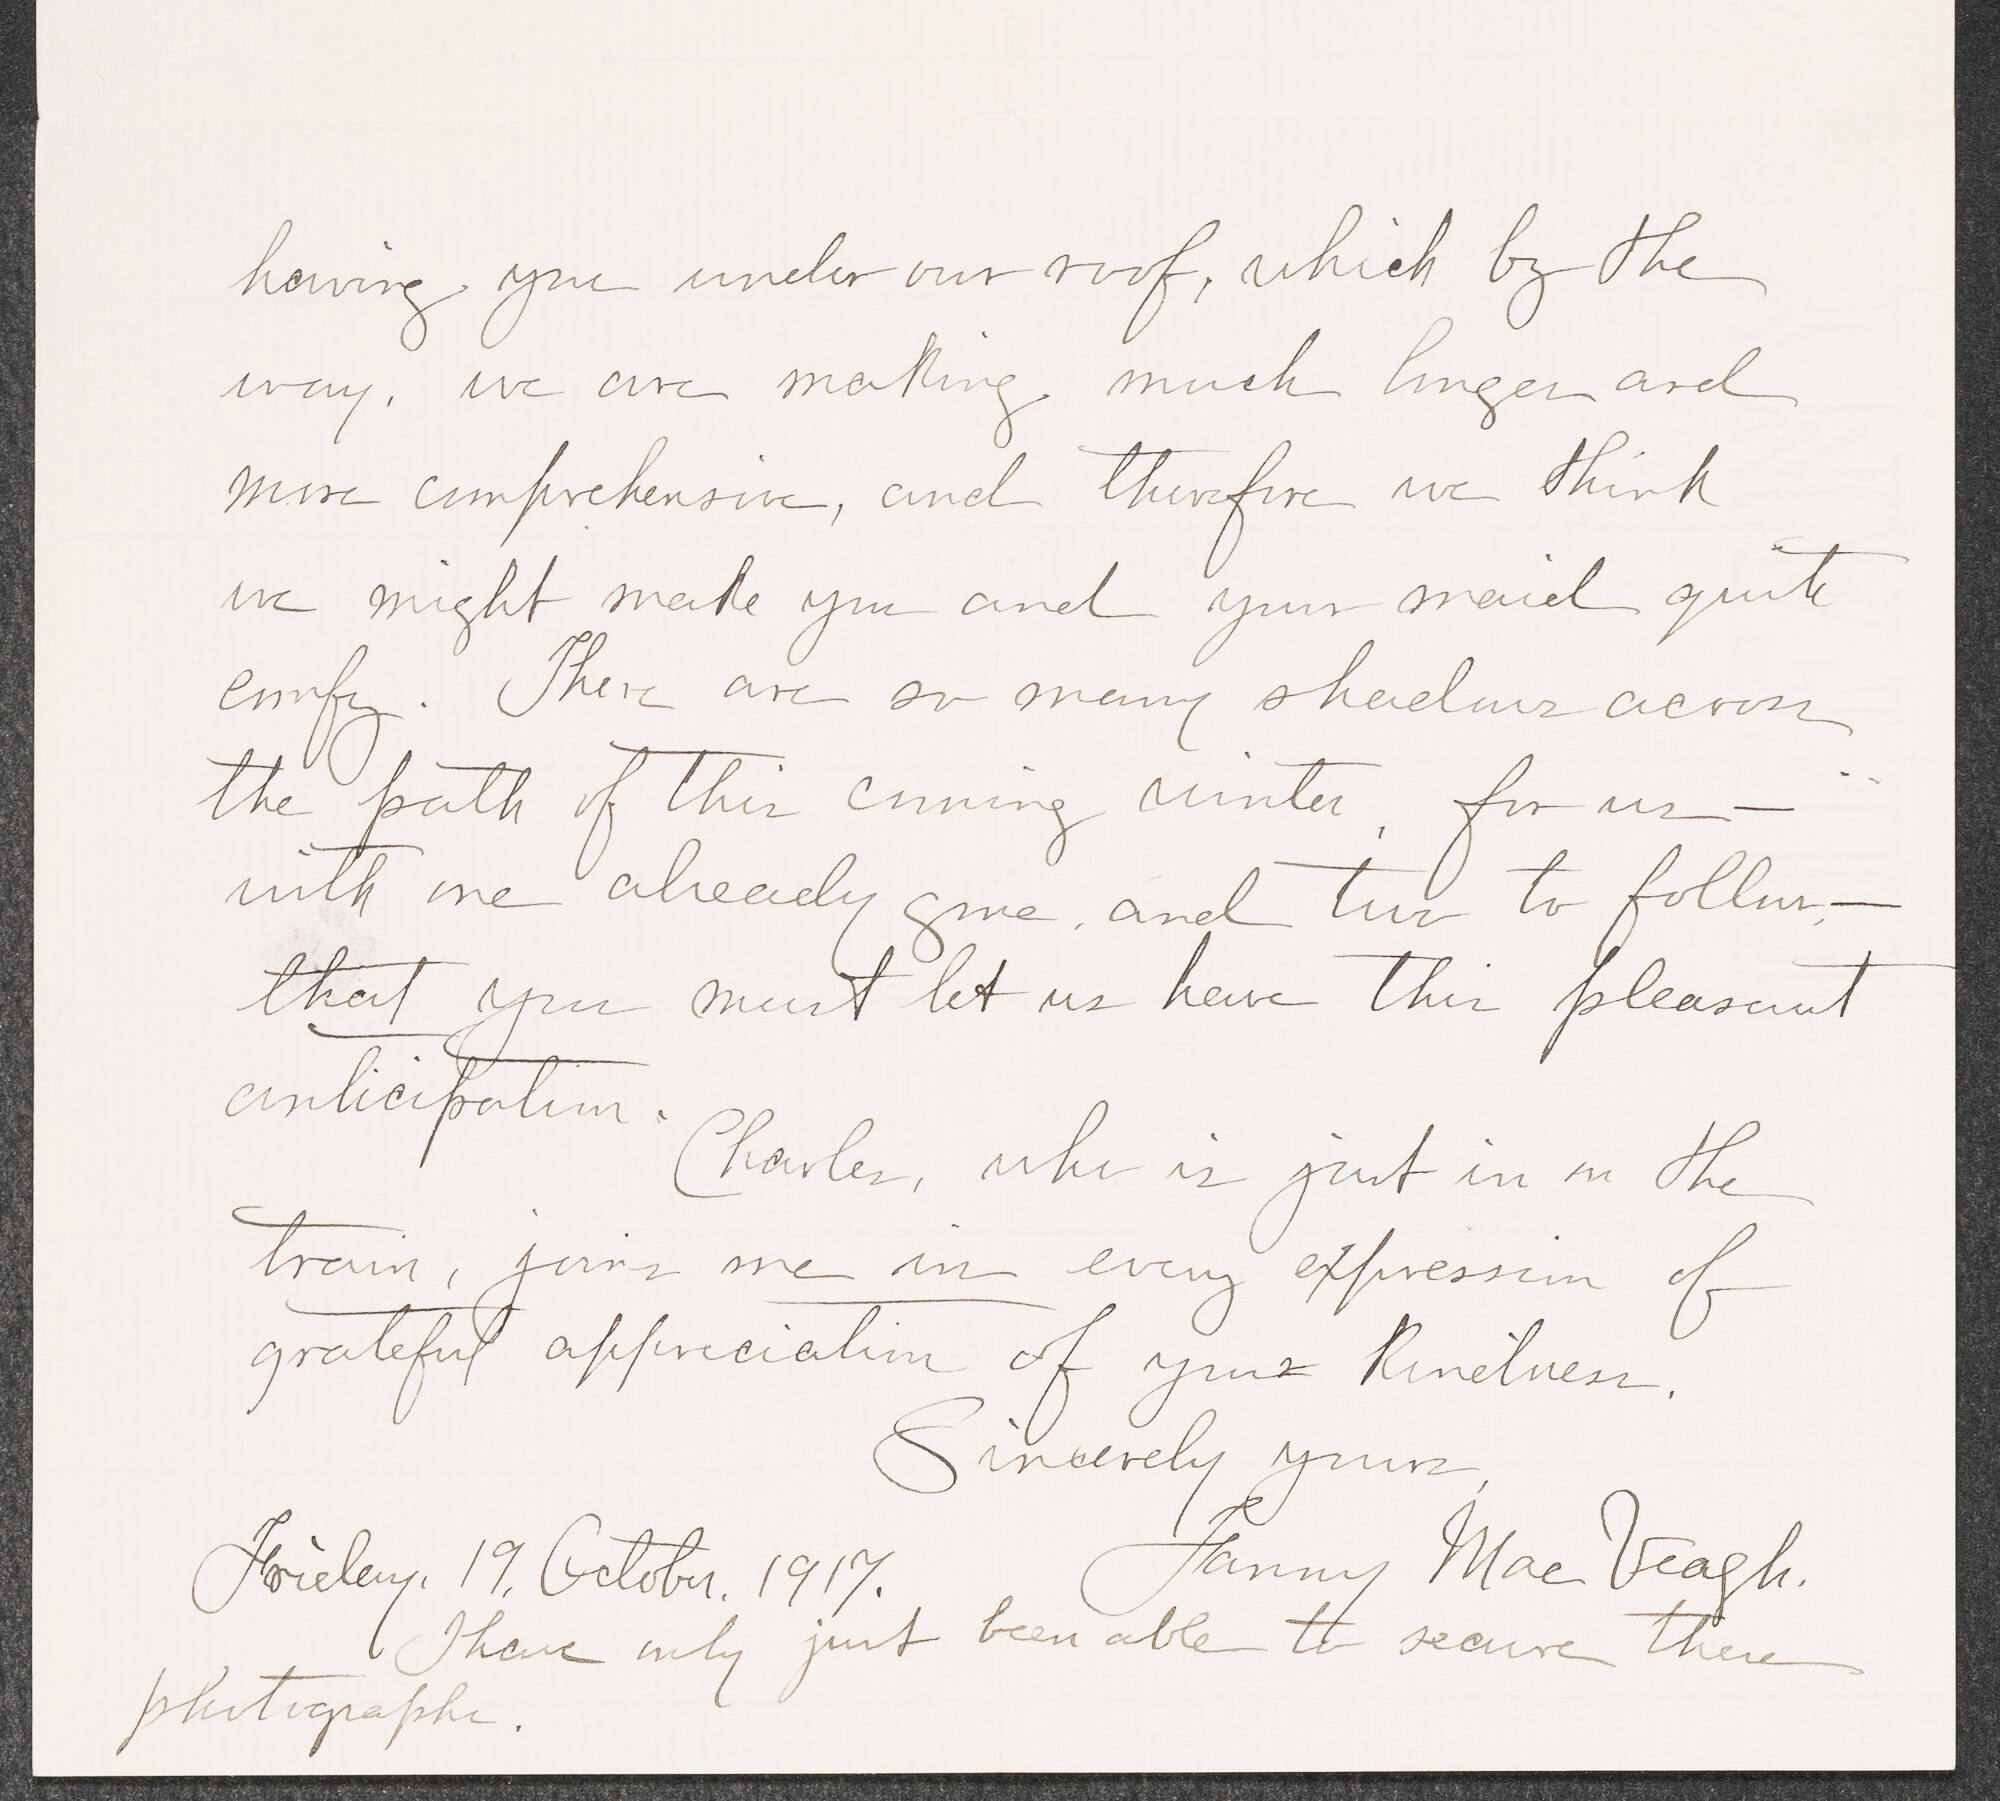 having you under our roof, which by the
way, we are making much longer and
more comprehensive, and therefore we think
we might make you and your maid quite
comfy. There are so many shadows across
the path of this coming winter, for us —
with one already gone, and two to follow, —
that you must let us have this pleasant
anticipation.
Charles, who is just in on the
train, joins me in every expression of
grateful appreciation of your kindness.
Sincerely yours,
Fanny Mac Veagh.
Friday. 19. October. 1917.
I have only just been able to secure these
photographs.